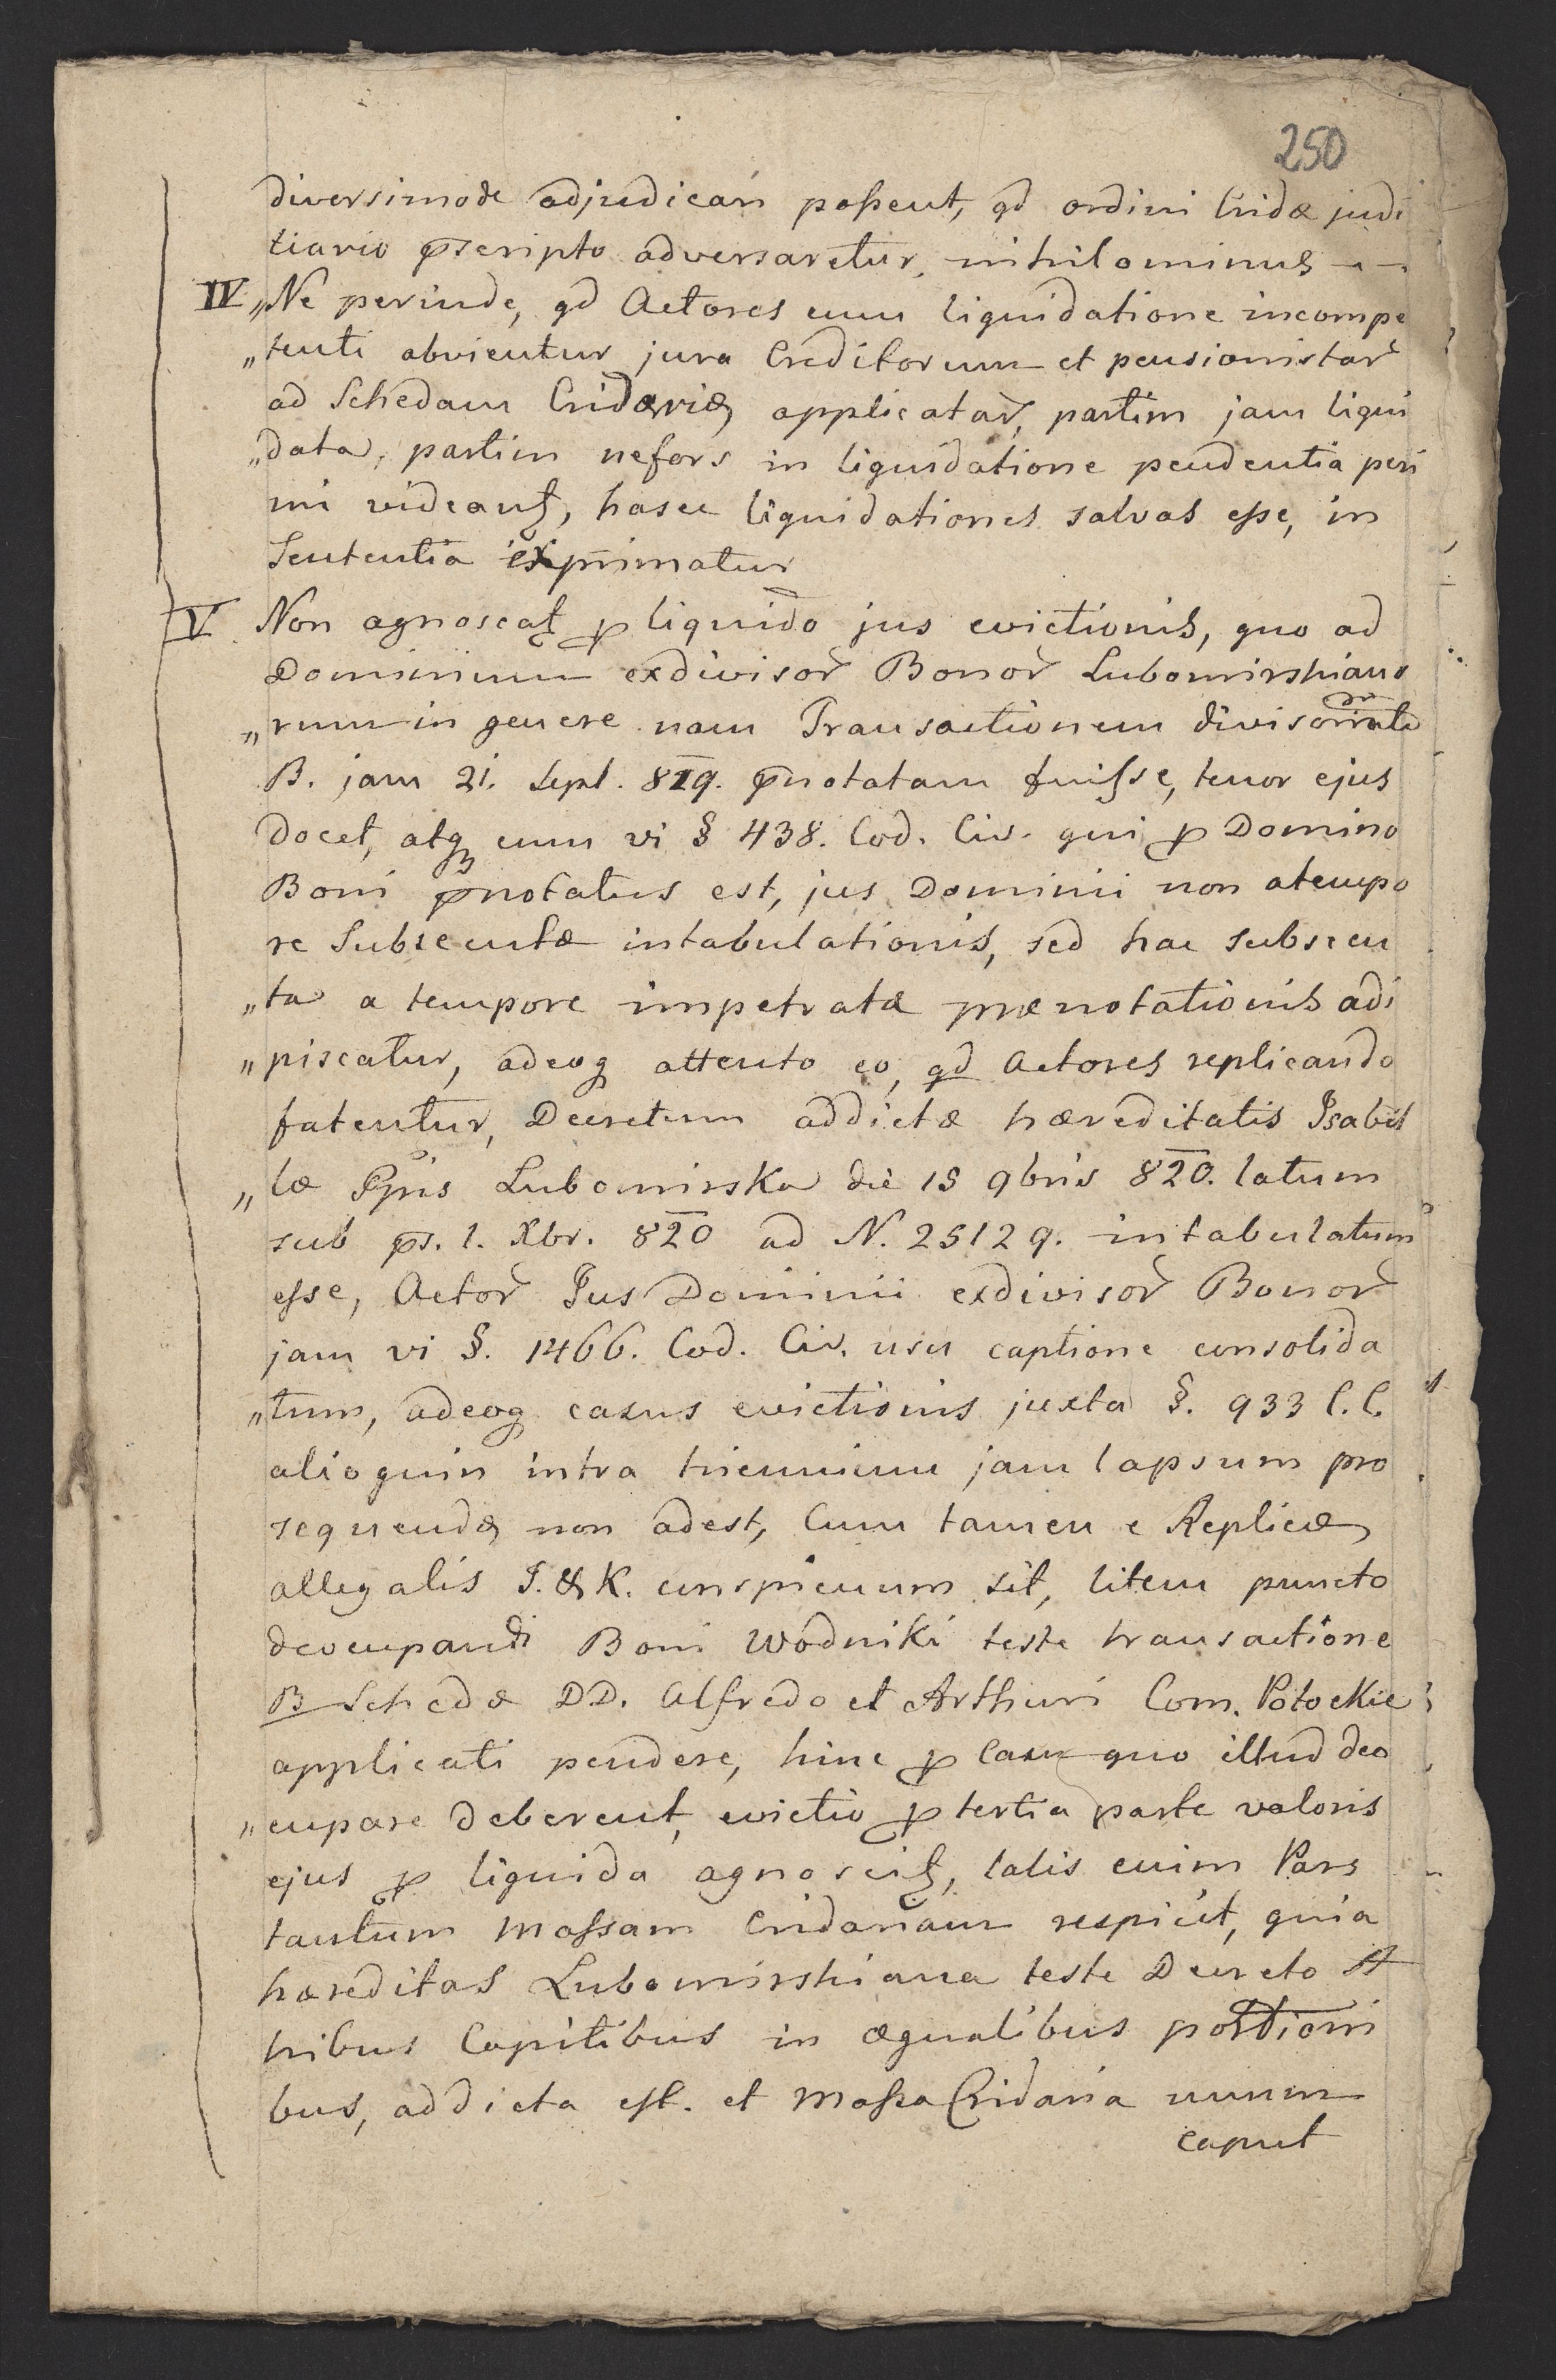 250
diversimode adjudicari possent, qd ordini Cridæ judi
tiario p̄scripto adversaretur, nihilominus --
IV „Ne perinde, qd Actores cum liquidatione incompe
„tenti abvientur jura Creditorum et pensionistar̃
ad Schedam Cridariæ applicatar̃, partim jam liqui
„data, partim nefors in liquidatione pendentia peri
mi videantꝫ, hasce liquidationes salvas esse, in
Sententia exprimatur
V Non agnoscatꝫ ꝓ liquido jus evictionis, quo ad
Dominium exdivisor̃ Bonor̃ Lubomirskiano
„rum in genere nam Transactionem divisor
B. jam 21. Sept. 819. p̄notatam fuisse, tenor ejus
docet, atqꝫ cum vi § 438. Cod. Civ. qui ꝓ Domino
Boni p̄notatus est, jus Dominii non a tempo
re Subsecutæ intabulationis, sed hac subsecu
„ta a tempore impetratæ prænotationis adi
„piscatur, adeoq attento eo, qd Actores replicando
fatentur, Decretum addictæ hæreditatis Isabel
„læ Ppis Lubomirska die 15 9bris 820. latum
sub p̄s. 1. Xbr. 820 ad N. 25129. intabulatum
esse, Actor̃ Jus Dominii exdivisor̃ Bonor̃
jam vi §. 1466. Cod. Civ. usu captione consolida
„tum, adeoq casus evictionis juxta §. 933 C.C.
alioquin intra triennium jam lapsum pro
sequendæ non adest, Cum tamen e Replicæ
allegatis J. & K. conspicuum sit, litem puncto
deocupandi Boni Wódniki teste transactione
B Schedæ DD. Alfredo et Arthuri Com. Potockie
applicati pendere, hinc ꝓ Casu quo illud deo
„cupare deberent, evictio ꝓ tertia parte valoris
ejus ꝓ liquida agnoscitꝫ, talis enim Pars
tantum Massam Cridariam respicit, quia
hæreditas Lubomirskiana teste Decreto A
tribus Capitibus in æqualibus portioni
bus, addicta est. et Massa Cridaria unum
caput